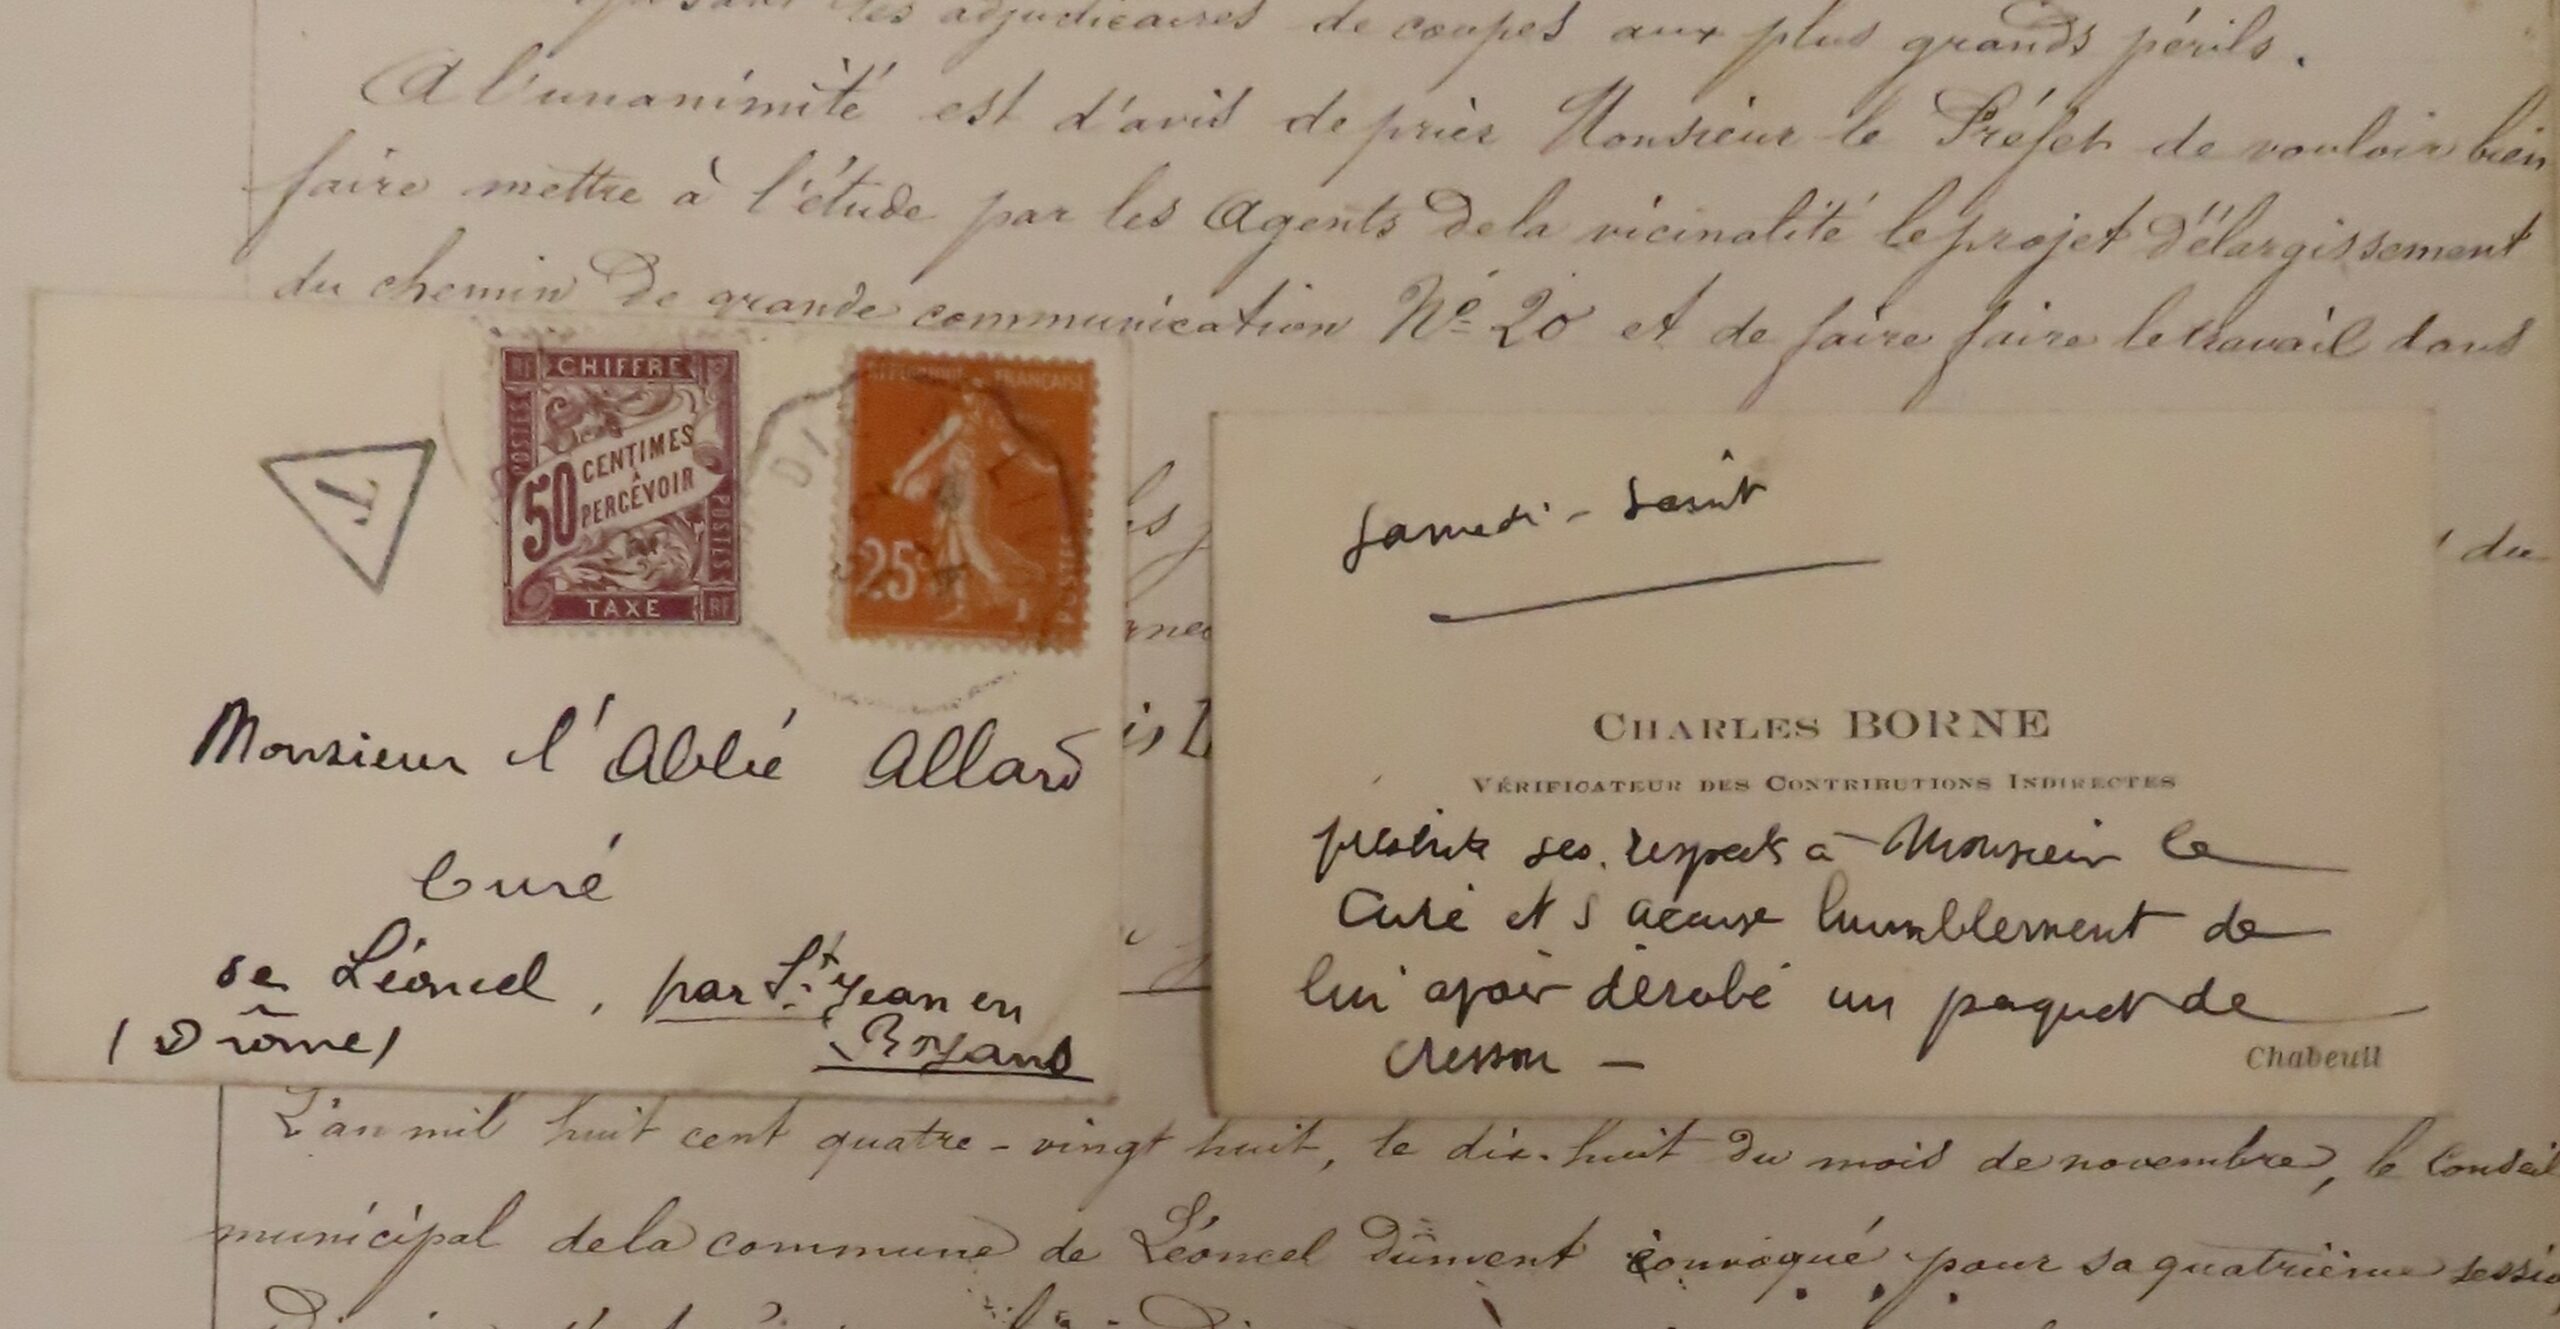 les adjudicaires de coupes aux plus grands périls.
A l'unanimité est d'avis de prier Monsieur le Préfet de vouloir bien
faire mettre à l'étude par les Agents de la vicinalité le projet d'élargissement
du chemin de grande communication N° 20 et de faire faire le travail dans
du
CHIFFRE
POSTES
50 CENTIMES
À
PERCEVOIR
POSTES
TAXE
RF
RÉPUBLIQUE FRANÇAISE
25c
POSTES
T
Monsieur l'Abbé Allard
Curé
de Léoncel, par St Jean en
(Drôme) Royans
Samedi-Saint
CHARLES BORNE
VÉRIFICATEUR DES CONTRIBUTIONS INDIRECTES
présente ses respects à Monsieur le
Curé et s'accuse humblement de
lui avoir dérobé un paquet de
cresson —
Chabeuil
L'an mil huit cent quatre-vingt huit, le dix-huit du mois de novembre, le Conseil
municipal de la commune de Léoncel dûment convoqué pour sa quatrième sessio